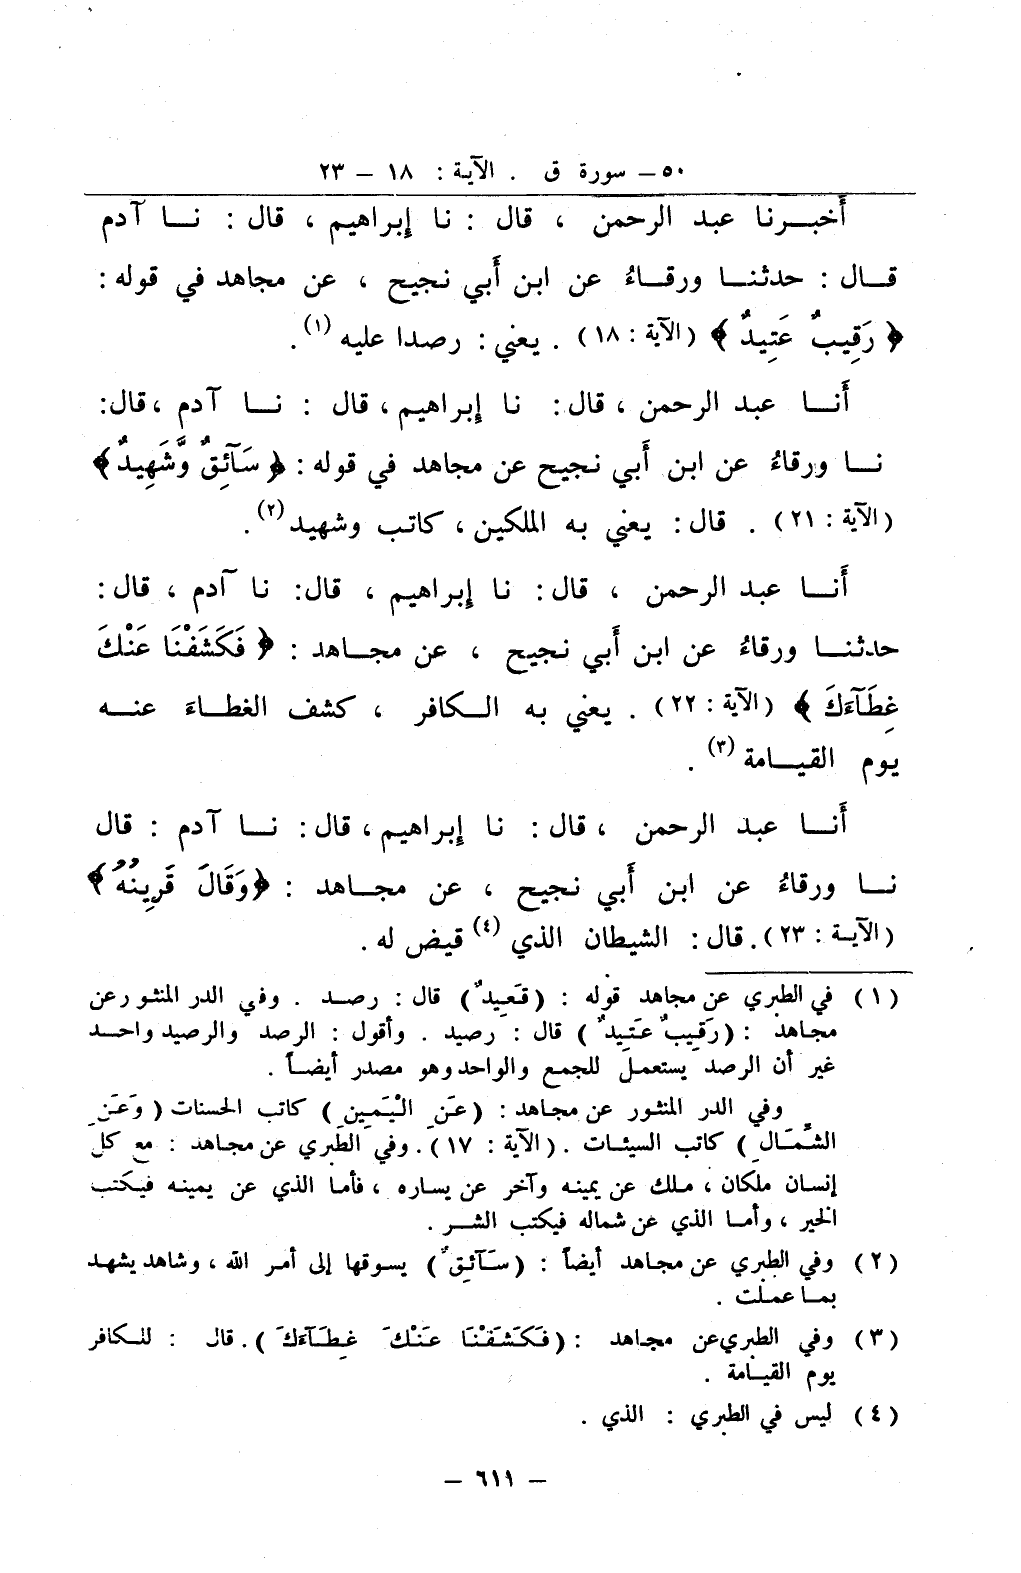 ٥٠ – سورة ق . الآية : ١٨ – ٢٣
أخبرنا عبد الرحمن ، قال : نا إبراهيم ، قال : نا آدم
قال : حدثنا ورقاءُ عن ابن أَبي نجيح ، عن مجاهد في قوله :
﴿ رَقِيبٌ عَتِيدٌ ﴾ (الآية : ١٨) . يعني : رصدا عليه (١) .
أَنا عبد الرحمن ، قال : نا إبراهيم ، قال : نا آدم ، قال :
نا ورقاءُ عن ابن أَبي نجيح عن مجاهد في قوله : ﴿ سَآئِقٌ وَّشَهِيدٌ ﴾
(الآية : ٢١) . قال : يعني به الملكين ، كاتب وشهيد (٢) .
أَنا عبد الرحمن ، قال : نا إبراهيم ، قال : نا آدم ، قال :
حدثنا ورقاءُ عن ابن أَبي نجيح ، عن مجاهد : ﴿ فَكَشَفْنَا عَنْكَ
غِطَآءَكَ ﴾ (الآية : ٢٢) . يعني به الكافر ، كشف الغطاءَ عنه
يوم القيامة (٣) .
أَنا عبد الرحمن ، قال : نا إبراهيم ، قال : نا آدم : قال
نا ورقاءُ عن ابن أَبي نجيح ، عن مجاهد : ﴿ وَقَالَ قَرِينُهُ ﴾
(الآية : ٢٣) . قال : الشيطان الذي (٤) قيض له .
(١) في الطبري عن مجاهد قوله : ( قَعِيدٌ ) قال : رصد . وفي الدر المنثور عن
مجاهد : ( رَقِيبٌ عَتِيدٌ ) قال : رصيد . وأقول : الرصد والرصيد واحد
غير أن الرصد يستعمل للجمع والواحد وهو مصدر أيضاً .
وفي الدر المنثور عن مجاهد : ( عَنِ الْيَمِينِ ) كاتب الحسنات ( وَعَنِ
الشِّمَالِ ) كاتب السيئات . ( الآية : ١٧ ) . وفي الطبري عن مجاهد : مع كل
إنسان ملكان ، ملك عن يمينه وآخر عن يساره ، فأما الذي عن يمينه فيكتب
الخير ، وأما الذي عن شماله فيكتب الشر .
(٢) وفي الطبري عن مجاهد أيضاً : ( سَآئِقٌ ) يسوقها إلى أمر الله ، وشاهد يشهد
بما عملت .
(٣) وفي الطبري عن مجاهد : ( فَكَشَفْنَا عَنْكَ غِطَآءَكَ ) . قال : للكافر
يوم القيامة .
(٤) ليس في الطبري : الذي .
– ٦١١ –